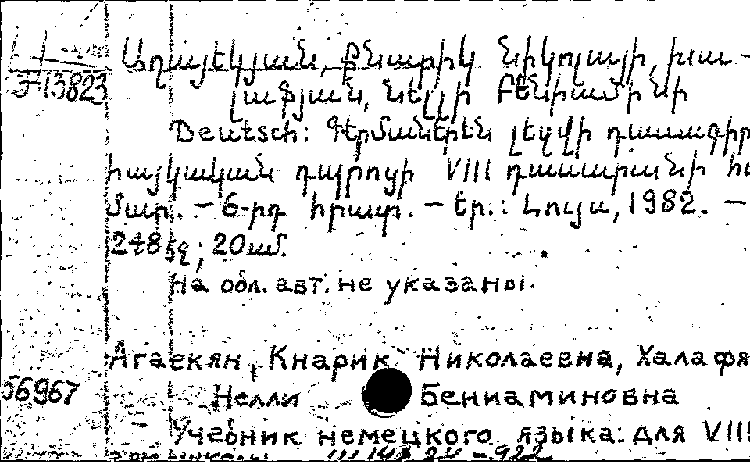 Աղայեկյան, Քնարիկ Նիկոլայի, Խալ-
Ֆ13823
աֆյան, Նելլի Բենիամինի
Deutsch: Գերմաներեն լեզվի դասագիր
հայկական դպրոցի VIII դասարանի հա
մար. - 6-րդ հրատ. - Եր.: Լույս, 1982. -
248 էջ; 20 սմ.
На обл. авт. не указаны.
Агаекян, Кнарик Николаевна, Халафя
56967 Нелли Бениаминовна
Учебник немецкого языка: для VIII